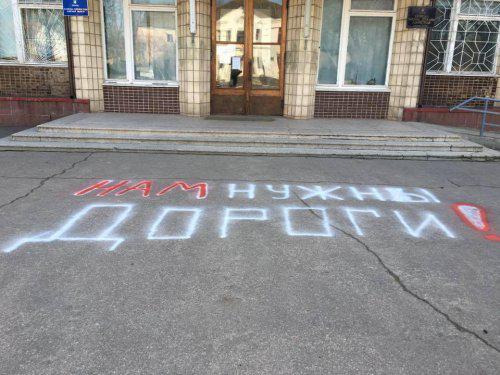 НАМ НУЖНЫ
ДОРОГИ!